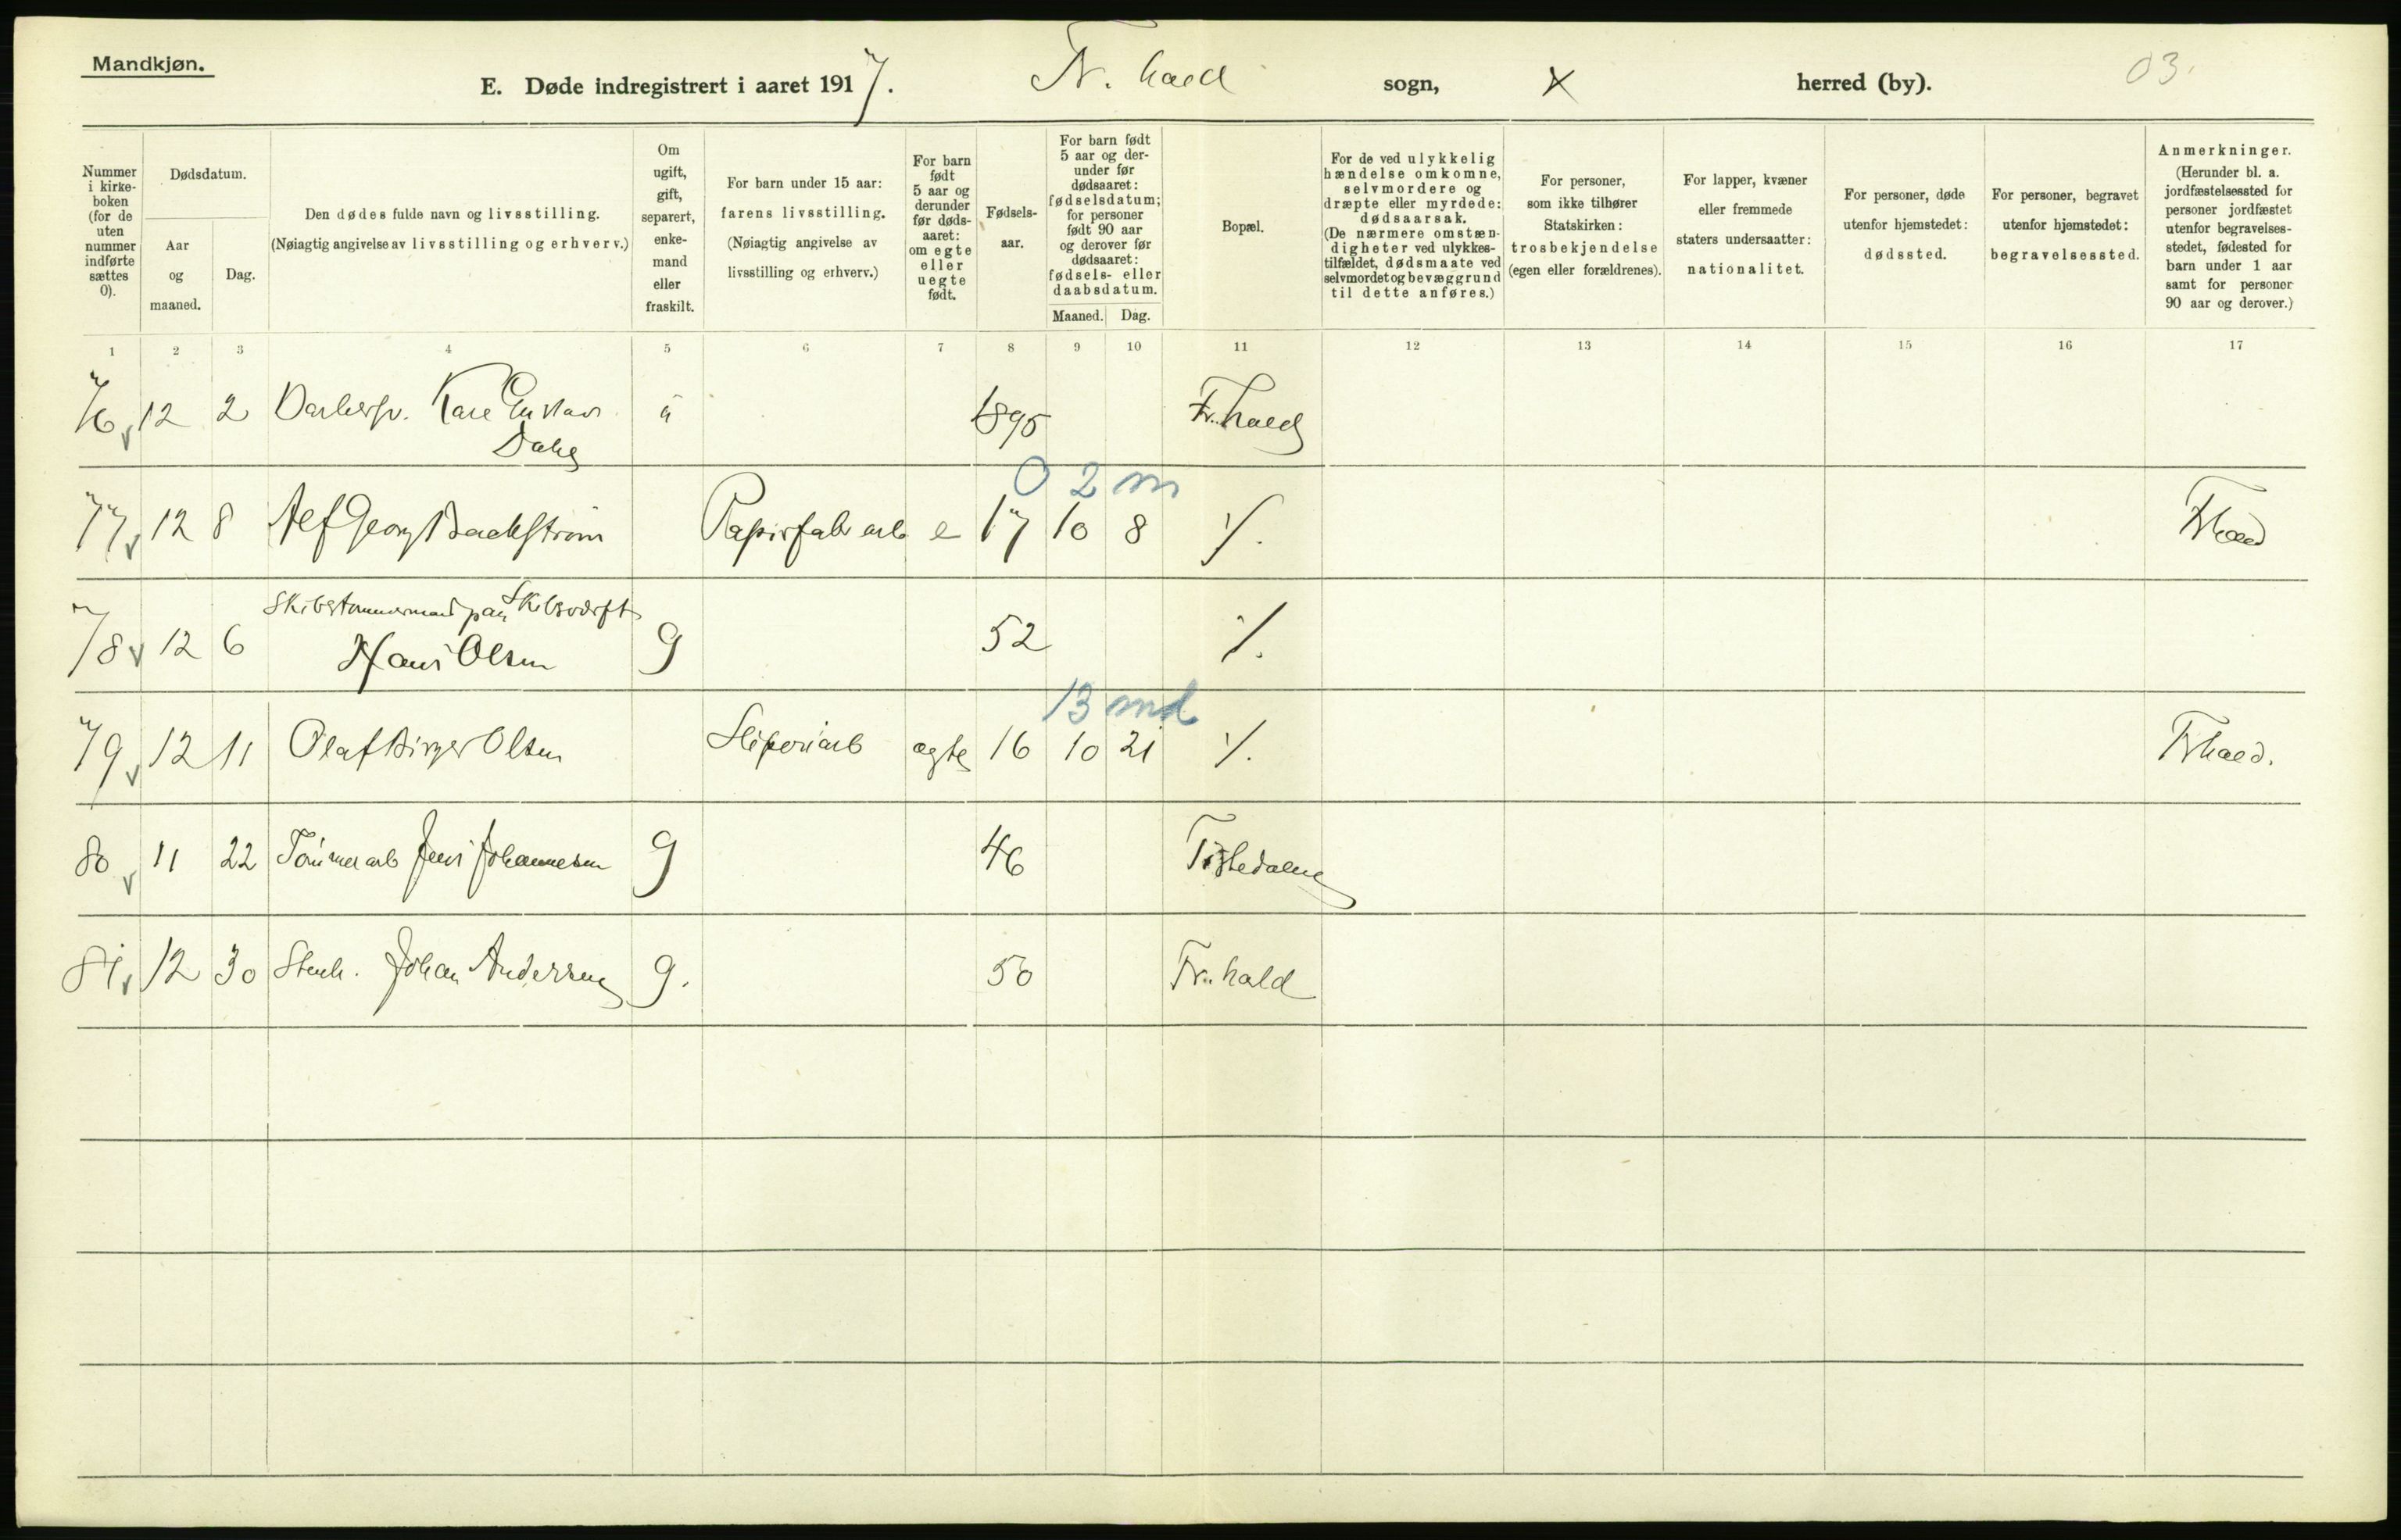 Mandkjøn.
E. Døde indregistrert i aaret 1917. Fr. hald sogn, x herred (by). 03.
Nummer i kirke- boken (for de uten nummer indførte sættes 0).
Dødsdatum.
Aar og maaned.
Dag.
Den dødes fulde navn og livsstilling.
(Nøiagtig angivelse av livsstilling og erhverv.)
Om ugift, gift, separert, enke- mand eller fraskilt.
For barn under 15 aar:
farens livsstilling.
(Nøiagtig angivelse av
livsstilling og erhverv.)
For barn født 5 aar og derunder før døds- aaret: om egte eller uegte født.
Fødsels- aar.
For barn født 5 aar og der- under før dødsaaret: fødselsdatum; for personer født 90 aar og derover før dødsaaret: fødsels- eller daabsdatum.
Maaned. Dag.
Bopæl.
For de ved ulykkelig hændelse omkomne, selvmordere og dræpte eller myrdede: dødsaarsak.
(De nærmere omstæn- digheter ved ulykkes- tilfældet, dødsmaate ved selvmordet og bevæggrund til dette anføres.)
For personer, som ikke tilhører Statskirken: trosbekjendelse (egen eller forældrenes).
For lapper, kvæner eller fremmede staters undersaatter: nationalitet.
For personer, døde utenfor hjemstedet: dødssted.
For personer, begravet utenfor hjemstedet: begravelsessted.
Anmerkninger.
(Herunder bl. a. jordfæstelsessted for personer jordfæstet utenfor begravelses- stedet, fødested for barn under 1 aar samt for personer 90 aar og derover.)
1 2 3 4 5 6 7 8 9 10 11 12 13 14 15 16 17
76 12 2 Karl Gustav u 1895 Fr.hald
Dahl
0 2 m
77 12 8 Alf Georg Backstrøm Papirfabr arb e 17 10 8 ./. Frhald
Skibstømmermand paa Skibsværft
78 12 6 Hans Olsen g 52 ./.
13 md
79 12 11 Olaf Birger Olsen Sliperiarb ægte 16 10 21 ./. Frhald.
80 11 22 Tømmerarb Jens Johannesen g 46 Tistedalen
81 12 30 Stenh. Johan Andersen g. 50 Fr.hald